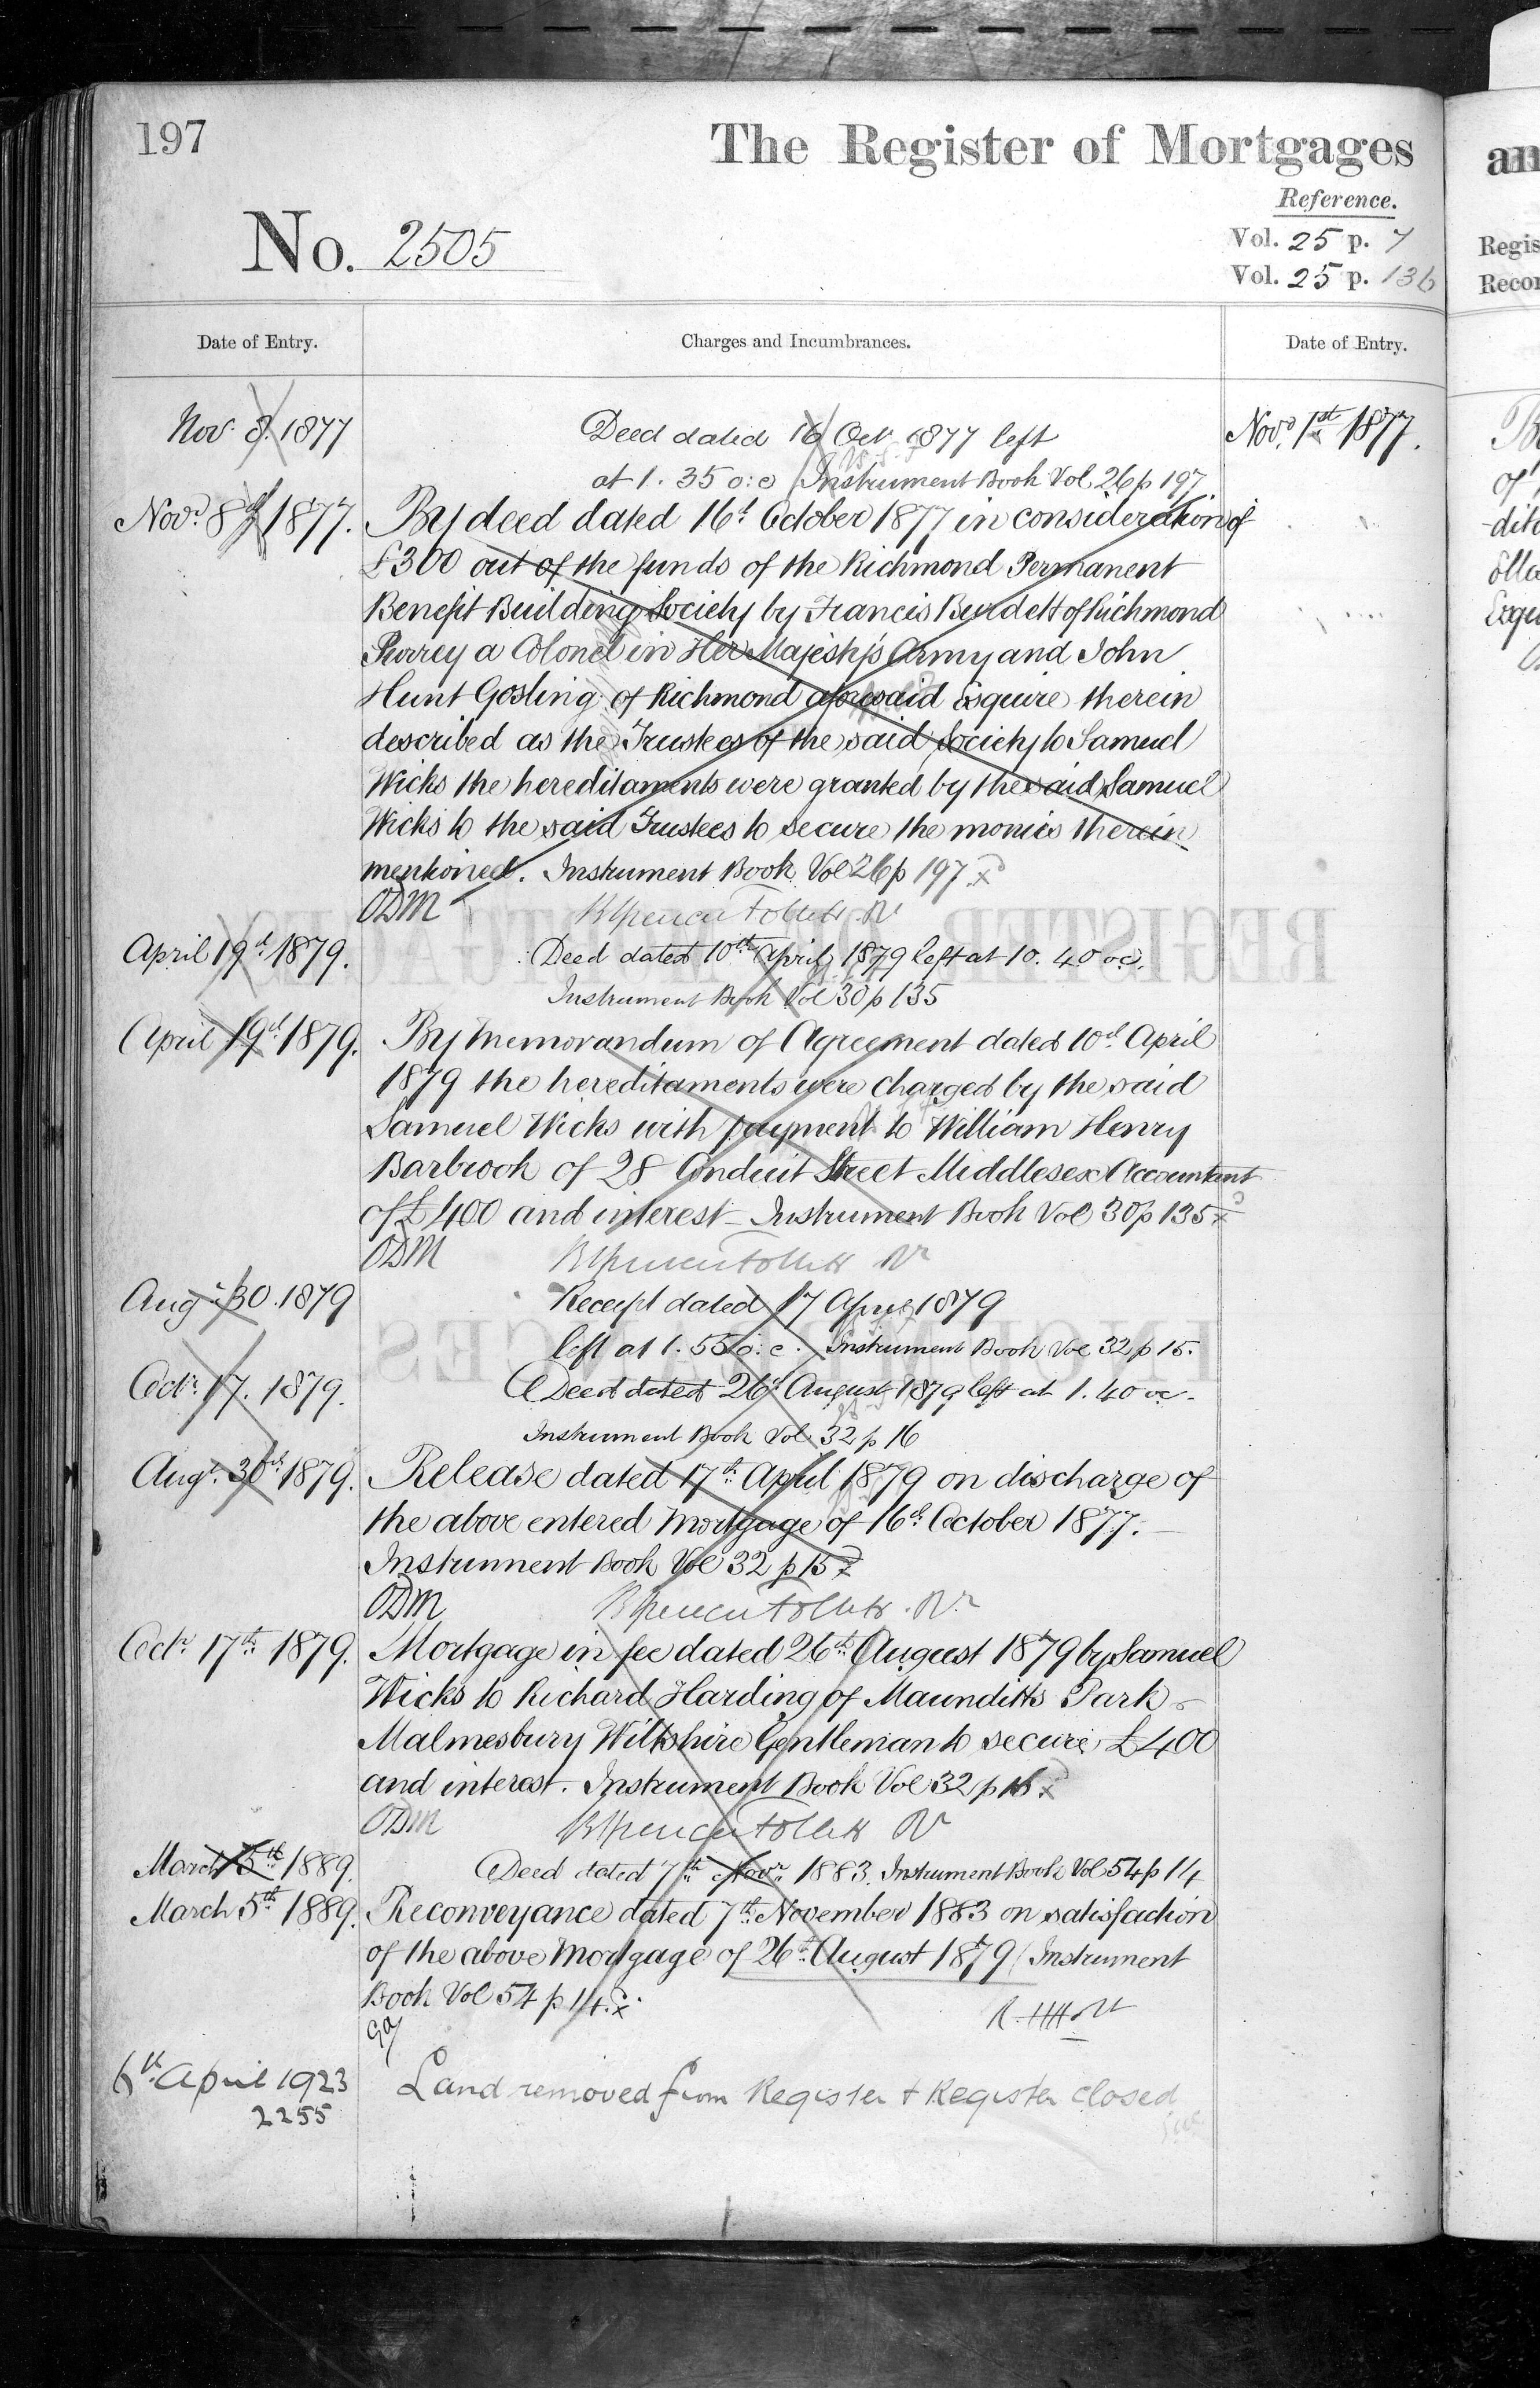 197
The Register of Mortgages
Reference.
No. 2505
Vol. 25 p. 7
Vol. 25 p. 136
Date of Entry.
Charges and Incumbrances.
Date of Entry.
Nov. 8. 1877
Deed dated 16 Oct 1877 left
Novr. 1st 1877.
at 1. 35 o:c Instrument Book Vol. 26 p 197
Novr. 8th 1877.
By deed dated 16th October 1877 in consideration of
£300 out of the funds of the Richmond Permanent
Benefit Building Society by Francis Burdett of Richmond
Surrey a Colonel in Her Majesty's Army and John
Hunt Gosling of Richmond aforesaid Esquire therein
described as the Trustees of the said Society to Samuel
Wicks the hereditaments were granted by the said Samuel
Wicks to the said Trustees to secure the monies therein
mentioned. Instrument Book Vol 26 p 197 x
ODM
April 19th 1879.
Deed dated 10th April 1879 left at 10. 40 oc.
Instrument Book Vol 30 p 135
April 19th 1879.
By Memorandum of Agreement dated 10th April
1879 the hereditaments were charged by the said
Samuel Wicks with payment to William Henry
Barbrook of 28 Conduit Street Middlesex Accountant
of £400 and interest – Instrument Book Vol 30 p 135 x
ODM
Augt. 30. 1879
Receipt dated 17 April 1879
left at 1. 55 o: c. Instrument Book Vol 32 p 15.
Octr. 17. 1879.
Deed dated 26th August 1879 left at 1. 40 oc.
Instrument Book Vol. 32 p 16
Augt. 30th 1879.
Release dated 17th April 1879 on discharge of
the above entered Mortgage of 16th October 1877. –
Instrument Book Vol 32 p 15 x
ODM
Octr. 17th 1879.
Mortgage in fee dated 26th August 1879 by Samuel
Wicks to Richard Harding of Maunditts Park
Malmesbury Wiltshire Gentleman to secure £400
and interest. Instrument Book Vol 32 p 16 x
ODM
March 5th 1889.
Deed dated 7th Novr. 1883. Instrument Book Vol 54 p 14
March 5th 1889.
Reconveyance dated 7th November 1883 on satisfaction
of the above Mortgage of 26th August 1879 (Instrument
Book Vol 54 p 14. x
6th April 1923
Land removed from Register + Register closed
2255